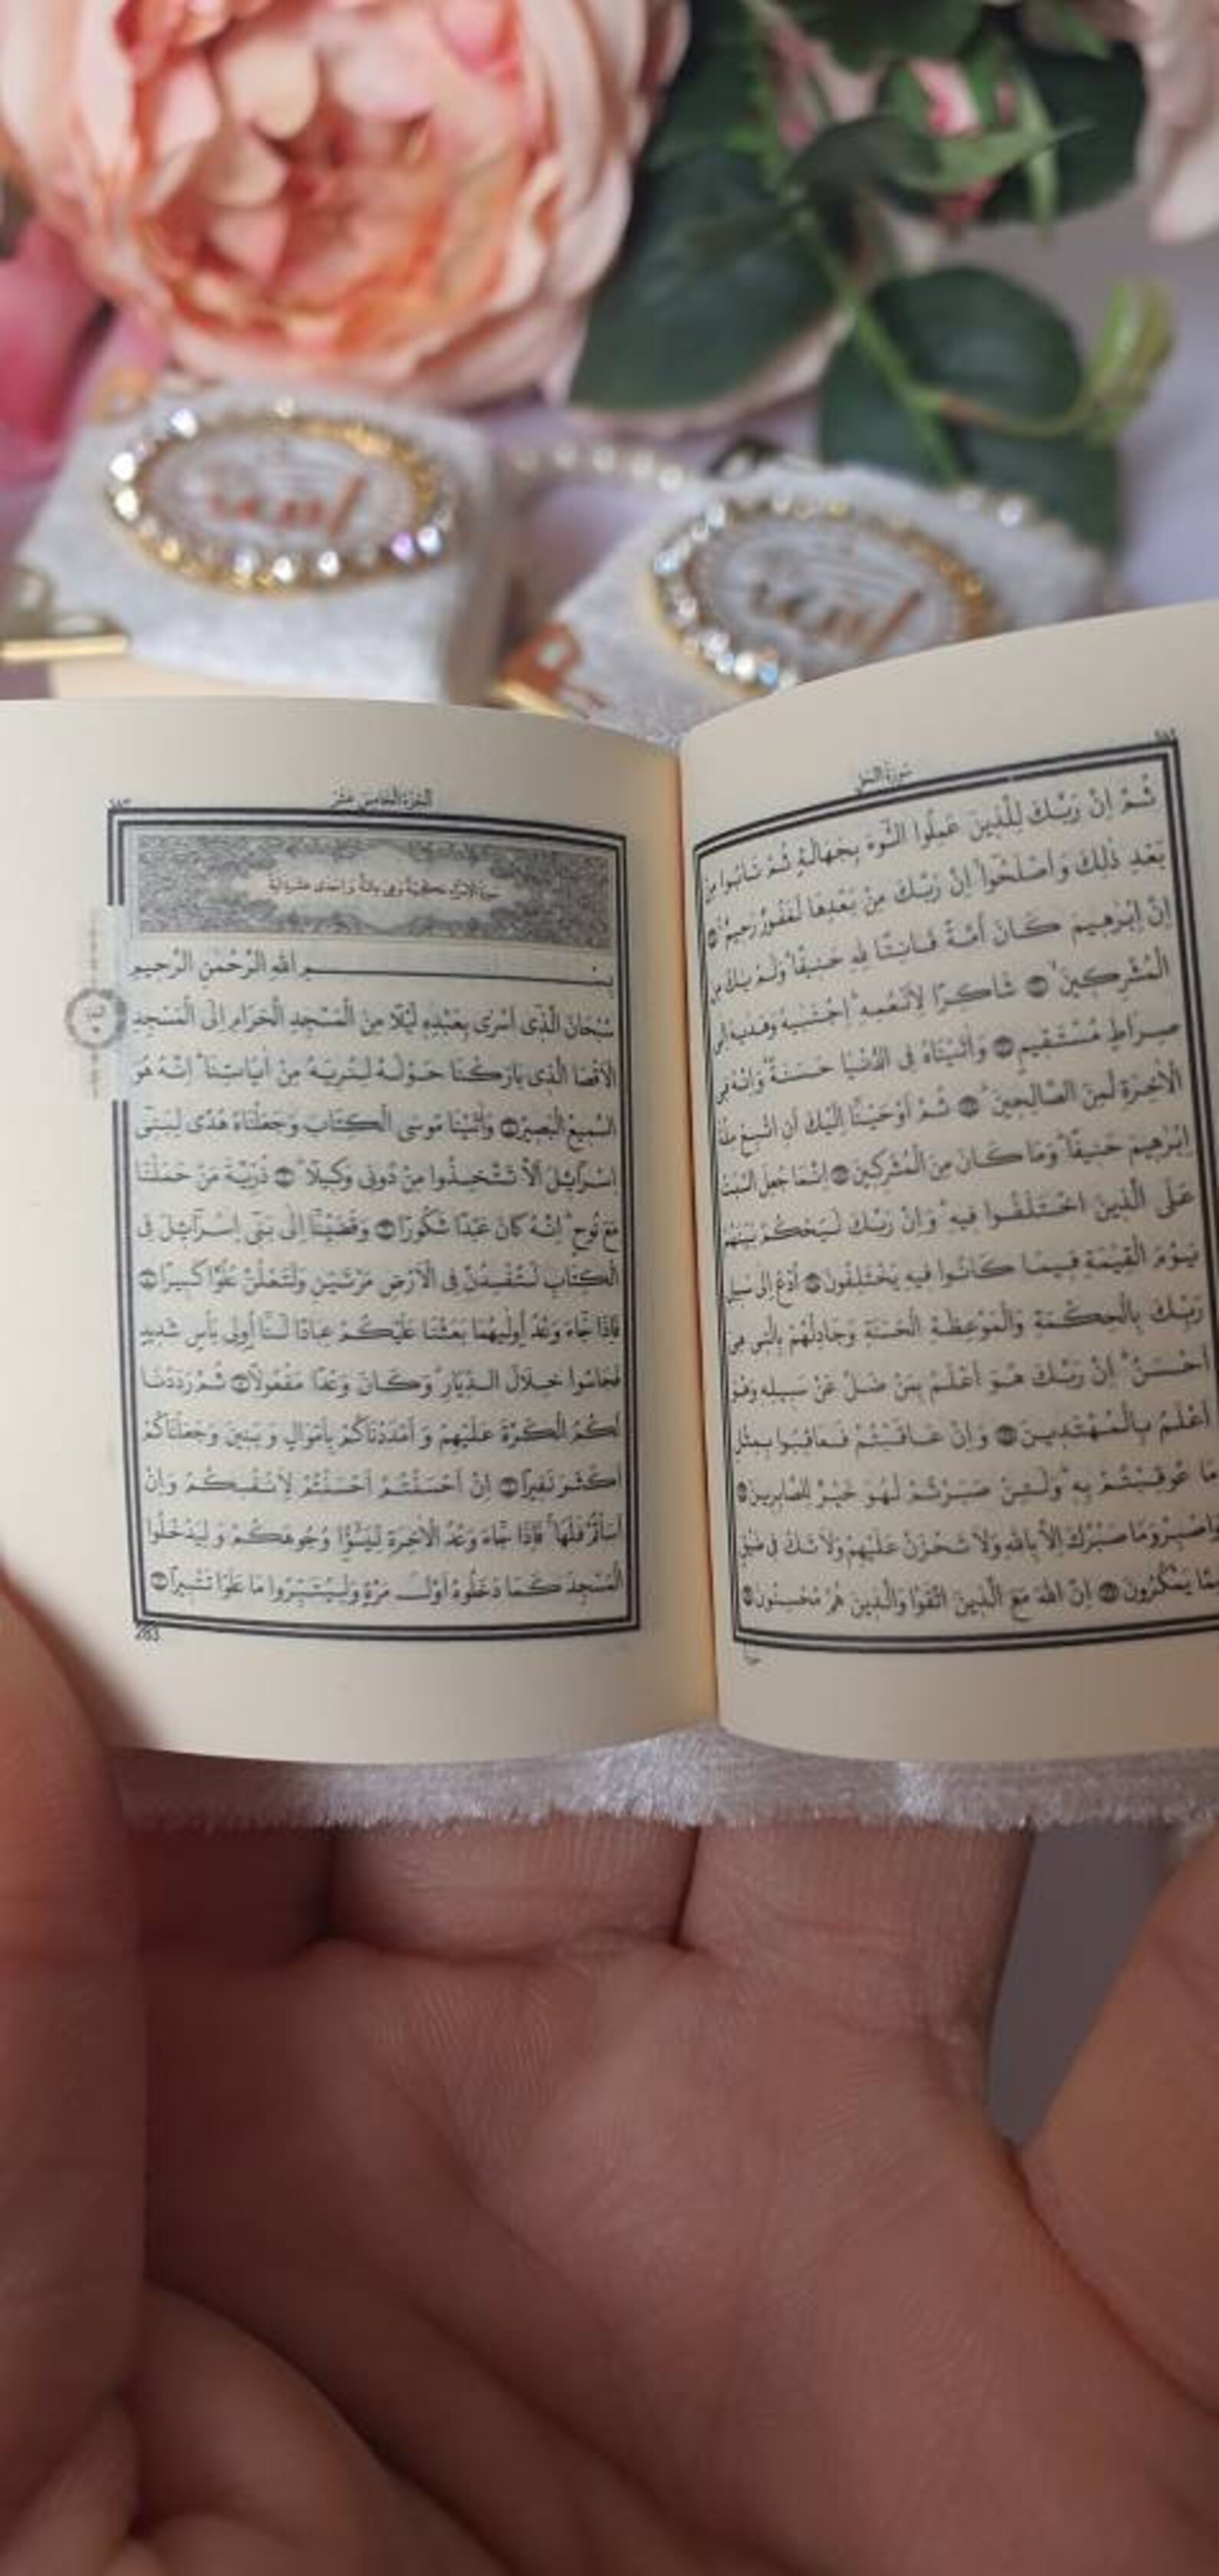 سورة النحل
ثُمَّ اِنَّ رَبَّكَ لِلَّذِينَ عَمِلُوا السُّوٓءَ بِجَهَالَةٍ ثُمَّ تَابُوا مِنْ
بَعْدِ ذٰلِكَ وَاَصْلَحُٓوا اِنَّ رَبَّكَ مِنْ بَعْدِهَا لَغَفُورٌ رَحِيمٌ
اِنَّ اِبْرٰهِيمَ كَانَ اُمَّةً قَانِتًا لِلّٰهِ حَنِيفًا وَلَمْ يَكُ مِنَ
الْمُشْرِكِينَ شَاكِرًا لِاَنْعُمِهِ اِجْتَبٰيهُ وَهَدٰيهُ اِلٰى
صِرَاطٍ مُسْتَقِيمٍ وَاٰتَيْنَاهُ فِى الدُّنْيَا حَسَنَةً وَاِنَّهُ فِى
الْاٰخِرَةِ لَمِنَ الصَّالِحِينَ ثُمَّ اَوْحَيْنَٓا اِلَيْكَ اَنِ اتَّبِعْ مِلَّةَ
اِبْرٰهِيمَ حَنِيفًا وَمَا كَانَ مِنَ الْمُشْرِكِينَ اِنَّمَا جُعِلَ السَّبْتُ
عَلَى الَّذِينَ اخْتَلَفُوا فِيهِ وَاِنَّ رَبَّكَ لَيَحْكُمُ بَيْنَهُمْ
يَوْمَ الْقِيٰمَةِ فِيمَا كَانُوا فِيهِ يَخْتَلِفُونَ اُدْعُ اِلٰى سَبِيلِ
رَبِّكَ بِالْحِكْمَةِ وَالْمَوْعِظَةِ الْحَسَنَةِ وَجَادِلْهُمْ بِالَّتِى هِىَ
اَحْسَنُ اِنَّ رَبَّكَ هُوَ اَعْلَمُ بِمَنْ ضَلَّ عَنْ سَبِيلِهِ وَهُوَ
اَعْلَمُ بِالْمُهْتَدِينَ وَاِنْ عَاقَبْتُمْ فَعَاقِبُوا بِمِثْلِ
مَا عُوقِبْتُمْ بِهِ وَلَئِنْ صَبَرْتُمْ لَهُوَ خَيْرٌ لِلصَّابِرِينَ
وَاصْبِرْ وَمَا صَبْرُكَ اِلَّا بِاللّٰهِ وَلَا تَحْزَنْ عَلَيْهِمْ وَلَا تَكُ فِى ضَيْقٍ
مِمَّا يَمْكُرُونَ اِنَّ اللّٰهَ مَعَ الَّذِينَ اتَّقَوْا وَالَّذِينَ هُمْ مُحْسِنُونَ
الجزء الخامس عشر
سورة الاسراء مكية وهى مائة واحدى عشرة اية
بِسْمِ اللّٰهِ الرَّحْمٰنِ الرَّحِيمِ
سُبْحَانَ الَّذِٓى اَسْرٰى بِعَبْدِهِ لَيْلًا مِنَ الْمَسْجِدِ الْحَرَامِ اِلَى الْمَسْجِدِ
الْاَقْصَا الَّذِى بَارَكْنَا حَوْلَهُ لِنُرِيَهُ مِنْ اٰيَاتِنَا اِنَّهُ هُوَ
السَّمِيعُ الْبَصِيرُ وَاٰتَيْنَا مُوسَى الْكِتَابَ وَجَعَلْنَاهُ هُدًى لِبَنِٓى
اِسْرَٓائِيلَ اَلَّا تَتَّخِذُوا مِنْ دُونِى وَكِيلًا ذُرِّيَّةَ مَنْ حَمَلْنَا
مَعَ نُوحٍ اِنَّهُ كَانَ عَبْدًا شَكُورًا وَقَضَيْنَٓا اِلٰى بَنِٓى اِسْرَٓائِيلَ فِى
الْكِتَابِ لَتُفْسِدُنَّ فِى الْاَرْضِ مَرَّتَيْنِ وَلَتَعْلُنَّ عُلُوًّا كَبِيرًا
فَاِذَا جَٓاءَ وَعْدُ اُولٰيهُمَا بَعَثْنَا عَلَيْكُمْ عِبَادًا لَنَٓا اُولِى بَأْسٍ شَدِيدٍ
فَجَاسُوا خِلَالَ الدِّيَارِ وَكَانَ وَعْدًا مَفْعُولًا ثُمَّ رَدَدْنَا
لَكُمُ الْكَرَّةَ عَلَيْهِمْ وَاَمْدَدْنَاكُمْ بِاَمْوَالٍ وَبَنِينَ وَجَعَلْنَاكُمْ
اَكْثَرَ نَفِيرًا اِنْ اَحْسَنْتُمْ اَحْسَنْتُمْ لِاَنْفُسِكُمْ وَاِنْ
اَسَأْتُمْ فَلَهَا فَاِذَا جَٓاءَ وَعْدُ الْاٰخِرَةِ لِيَسُٓؤُا وُجُوهَكُمْ وَلِيَدْخُلُوا
الْمَسْجِدَ كَمَا دَخَلُوهُ اَوَّلَ مَرَّةٍ وَلِيُتَبِّرُوا مَا عَلَوْا تَتْبِيرًا
283